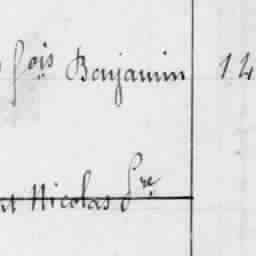 fois Benjamin 14
Nicolas fre